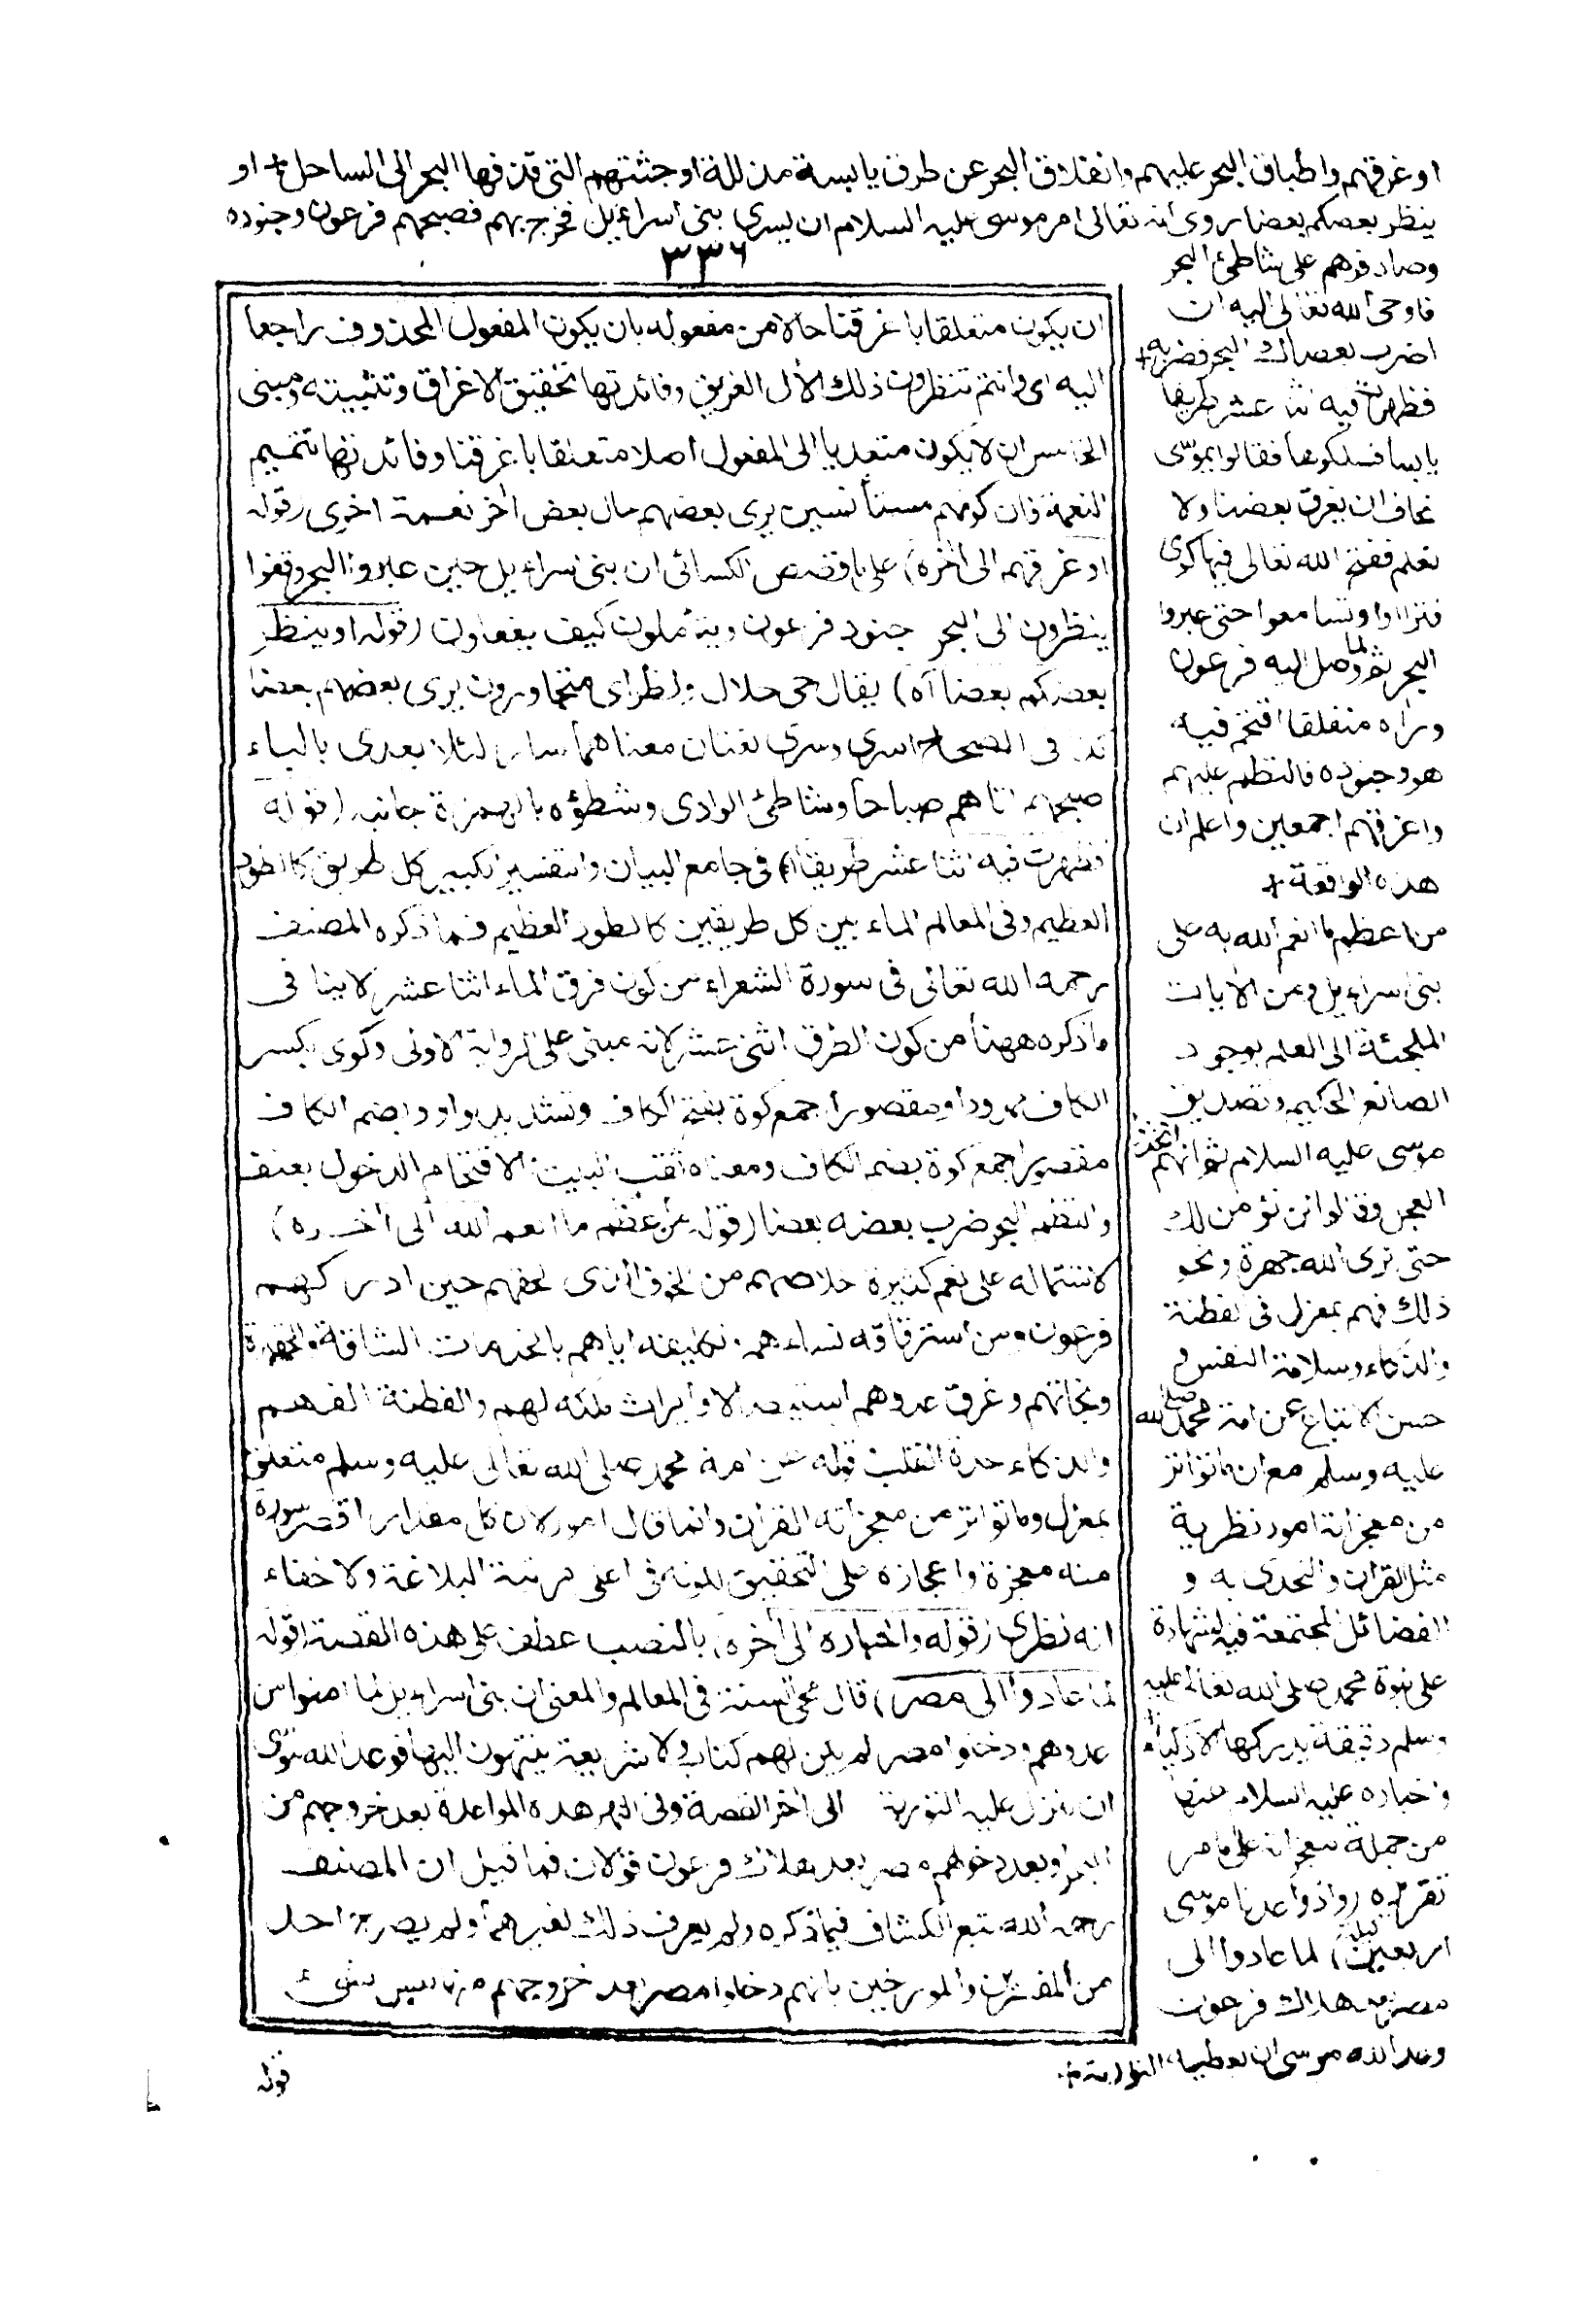 او غرقهم واطباق البحر عليهم وانفلاق البحر عن طرق يابسة مذللة او جثثهم التى قذفها البحر الى الساحل + او
ينظر بعضكم بعضا روى انه تعالى امر موسى عليه السلام ان يسرى ببنى اسرائيل فخرج بهم فصبحهم فرعون وجنوده
٣٣٦
وصادفوهم على شاطئ البحر
فاوحى الله تعالى اليه ان
اضرب بعصاك البحر فضربه +
فظهرت فيه اثنا عشر طريقا
يابسا فسلكوها فقالوا يموسى
نخاف ان يغرق بعضنا ولا
نعلم ففتح الله تعالى فيها كوى
فتراأوا وتسامعوا حتى عبروا
البحر ثم لما وصل اليه فرعون
وراٰه منفلقا اقتحم فيه
هو وجنوده فالتطم عليهم
واغرقهم اجمعين واعلم ان
هذه الواقعة +
من اعظم ما انعم الله به على
بنى اسرائيل ومن الاٰيات
الملجئة الى العلم بوجود
الصانع الحكيم وتصديق
موسى عليه السلام ثم انهم اتخذوا
العجل وقالوا لن نؤمن لك
حتى نرى الله جهرة ونحو
ذلك فهم بمعزل فى الفطنة
والذكاء وسلامة النفس و
حسن الاتباع عن امة محمد صلى الله
عليه وسلم مع ان ما تواتر
من معجزاته امور نظرية
مثل القراٰن والتحدى به و
الفضائل المجتمعة فيه الشهادة
على نبوة محمد صلى الله تعالى عليه
وسلم دقيقة يدركها الاذكياء
واخباره عليه السلام عنها
من جملة معجزاته على ما مر
تقريره (واذ واعدنا موسى
اربعين ليلة) لما عادوا الى
مصر بعد هلاك فرعون
وعد الله موسى ان يعطيه التورية
ان يكون متعلقا باغرقنا حالا من مفعوله بان يكون المفعول المحذوف راجعا
اليه اى وانتم تنظرون ذلك الاٰل الغريق وفائدتها تحقيق الاغراق وتثبيته ومبنى
الخامس ان لا يكون متعديا الى المفعول اصلا متعلقا باغرقنا وفائدتها تتميم
النعمة فان كونهم مستأنسين يرى بعضهم حال بعض اٰخر نعمة اخرى (قوله
او غرقهم الى اٰخره) على ما قصص الكسائى ان بنى اسرائيل حين عبروا البحر وقفوا
ينظرون الى البحر جنود فرعون ويتأملون كيف يفعلون (قوله او ينظر
بعضكم بعضا اٰه) يقال حى حلال ونظر اى متجاورون يرى بعضهم بعضا
كذا فى الصحاح اسرى وسرى لغتان معناهما سار ليلا يعدى بالباء
صبحهم اتاهم صباحا وشاطئ الوادى وشطؤه بالهمزة جانبه (قوله
فظهرت فيه اثنا عشر طريقا) فى جامع البيان والتفسير الكبير كل طريق كالطود
العظيم وفى المعالم الماء بين كل طريقين كالطود العظيم فما ذكره المصنف
رحمه الله تعالى فى سورة الشعراء من كون فرق الماء اثنا عشر لا ينافى
ما ذكره ههنا من كون الطرق اثنى عشر لانه مبنى على الرواية الاولى وكوى بكسر
الكاف ممدودا ومقصورا جمع كوة بفتح الكاف وتشديد الواو وبضم الكاف
مقصورا جمع كوة بضم الكاف ومعناه ثقب البيت الاقتحام الدخول بعنف
والتطم البحر ضرب بعضه بعضا (قوله من اعظم ما انعم الله الى اٰخره)
لاشتماله على نعم كثيرة خلاصهم من الخوف الذى لحقهم حين ادركهم
فرعون ومن استرقاقه نساءهم وتكليفه اياهم بالخدمات الشاقة والحقيرة
ونجاتهم وغرق عدوهم استيصالا وايراث ملكه لهم والفطنة الفهم
والذكاء حدة القلب قوله عن امة محمد صلى الله تعالى عليه وسلم متعلق
بمعزل وما تواتر من معجزاته القراٰن وانما قال امور لان كل مقدار اقصر سورة
منه معجزة واعجازه على التحقيق لكونه فى اعلى مرتبة البلاغة ولا خفاء
انه نظرى (قوله واخباره الى اٰخره) بالنصب عطف على هذه القصة (قوله
لما عادوا الى مصر) قال محى السنة فى المعالم والمعنى ان بنى اسرائيل لما امنوا من
عدوهم ودخلوا مصر لم يكن لهم كتاب ولا شريعة ينتهون اليها فوعد الله موسى
ان ينزل عليه التورية الى اٰخر القصة وفى النهر هذه المواعدة بعد خروجهم من
البحر او بعد دخولهم مصر بعد هلاك فرعون قولان فما قيل ان المصنف
رحمه الله تبع الكشاف فيما ذكره ولم يعرف ذلك لغيرهما ولم يصرح احد
من المفسرين والمورخين بانهم دخلوا مصر بعد خروجهم منها ليس بشئ
قوله